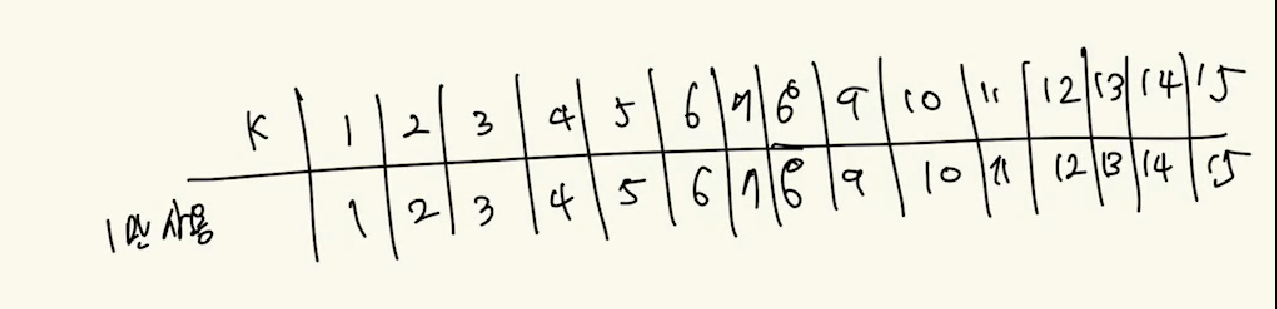 K 1 2 3 4 5 6 7 8 9 10 11 12 13 14 15
1만 사용 1 2 3 4 5 6 7 8 9 10 11 12 13 14 15